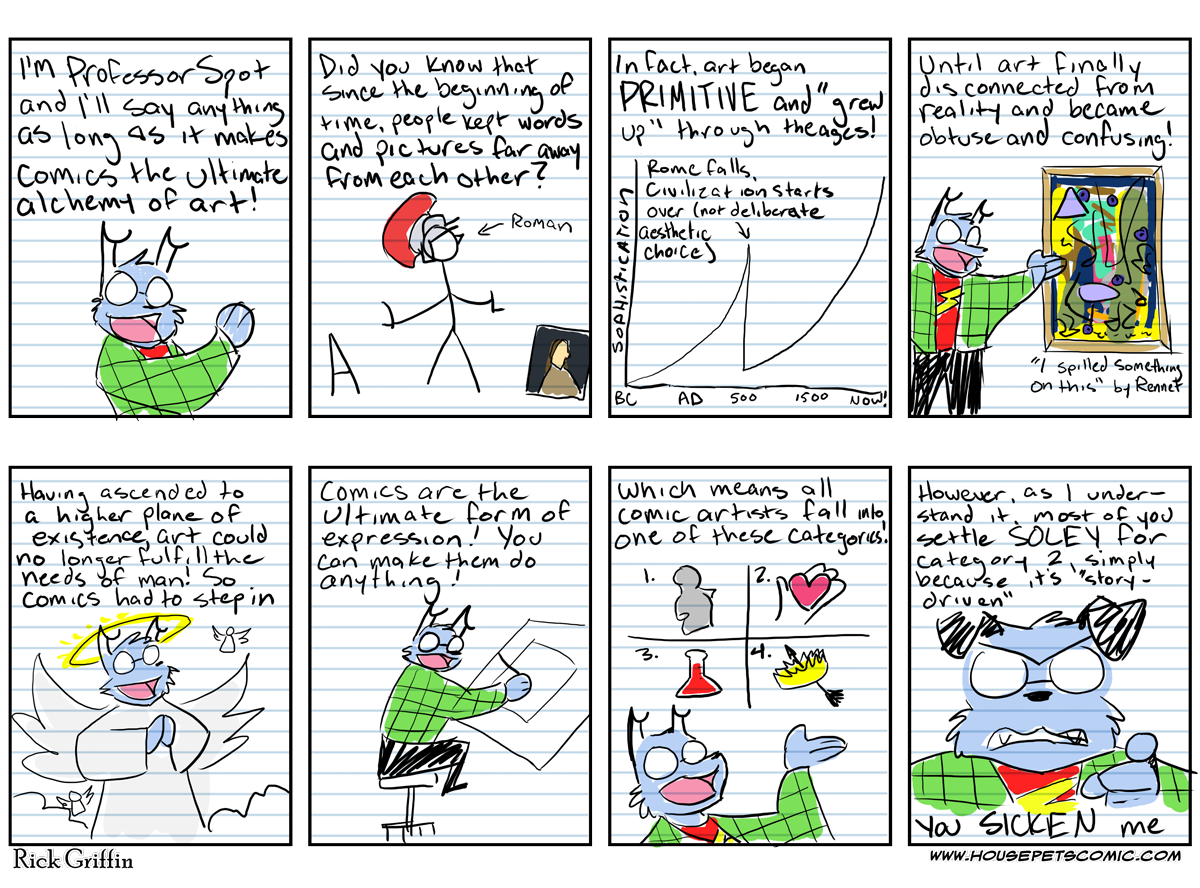 I'm Professor Spot
and I'll say anything
as long as it makes
comics the ultimate
alchemy of art!
Did you know that
since the beginning of
time, people kept words
and pictures far away
from each other?
← Roman
A
In fact, art began
PRIMITIVE and "grew
up" through the ages!
Rome falls,
Civilization starts
over (not deliberate
aesthetic
choice)
SOPHISTICATION
BC AD 500 1500 NOW!
Until art finally
disconnected from
reality and became
obtuse and confusing!
"I spilled something
on this" by Rennet
Having ascended to
a higher plane of
existence, art could
no longer fulfill the
needs of man! So
comics had to step in
Comics are the
ultimate form of
expression! You
can make them do
anything!
Which means all
comic artists fall into
one of these categories!
1. 2.
3. 4.
However, as I under-
stand it, most of you
settle SOLEY for
category 2, simply
because it's "story-
driven"
You SICKEN me
Rick Griffin
WWW.HOUSEPETSCOMIC.COM